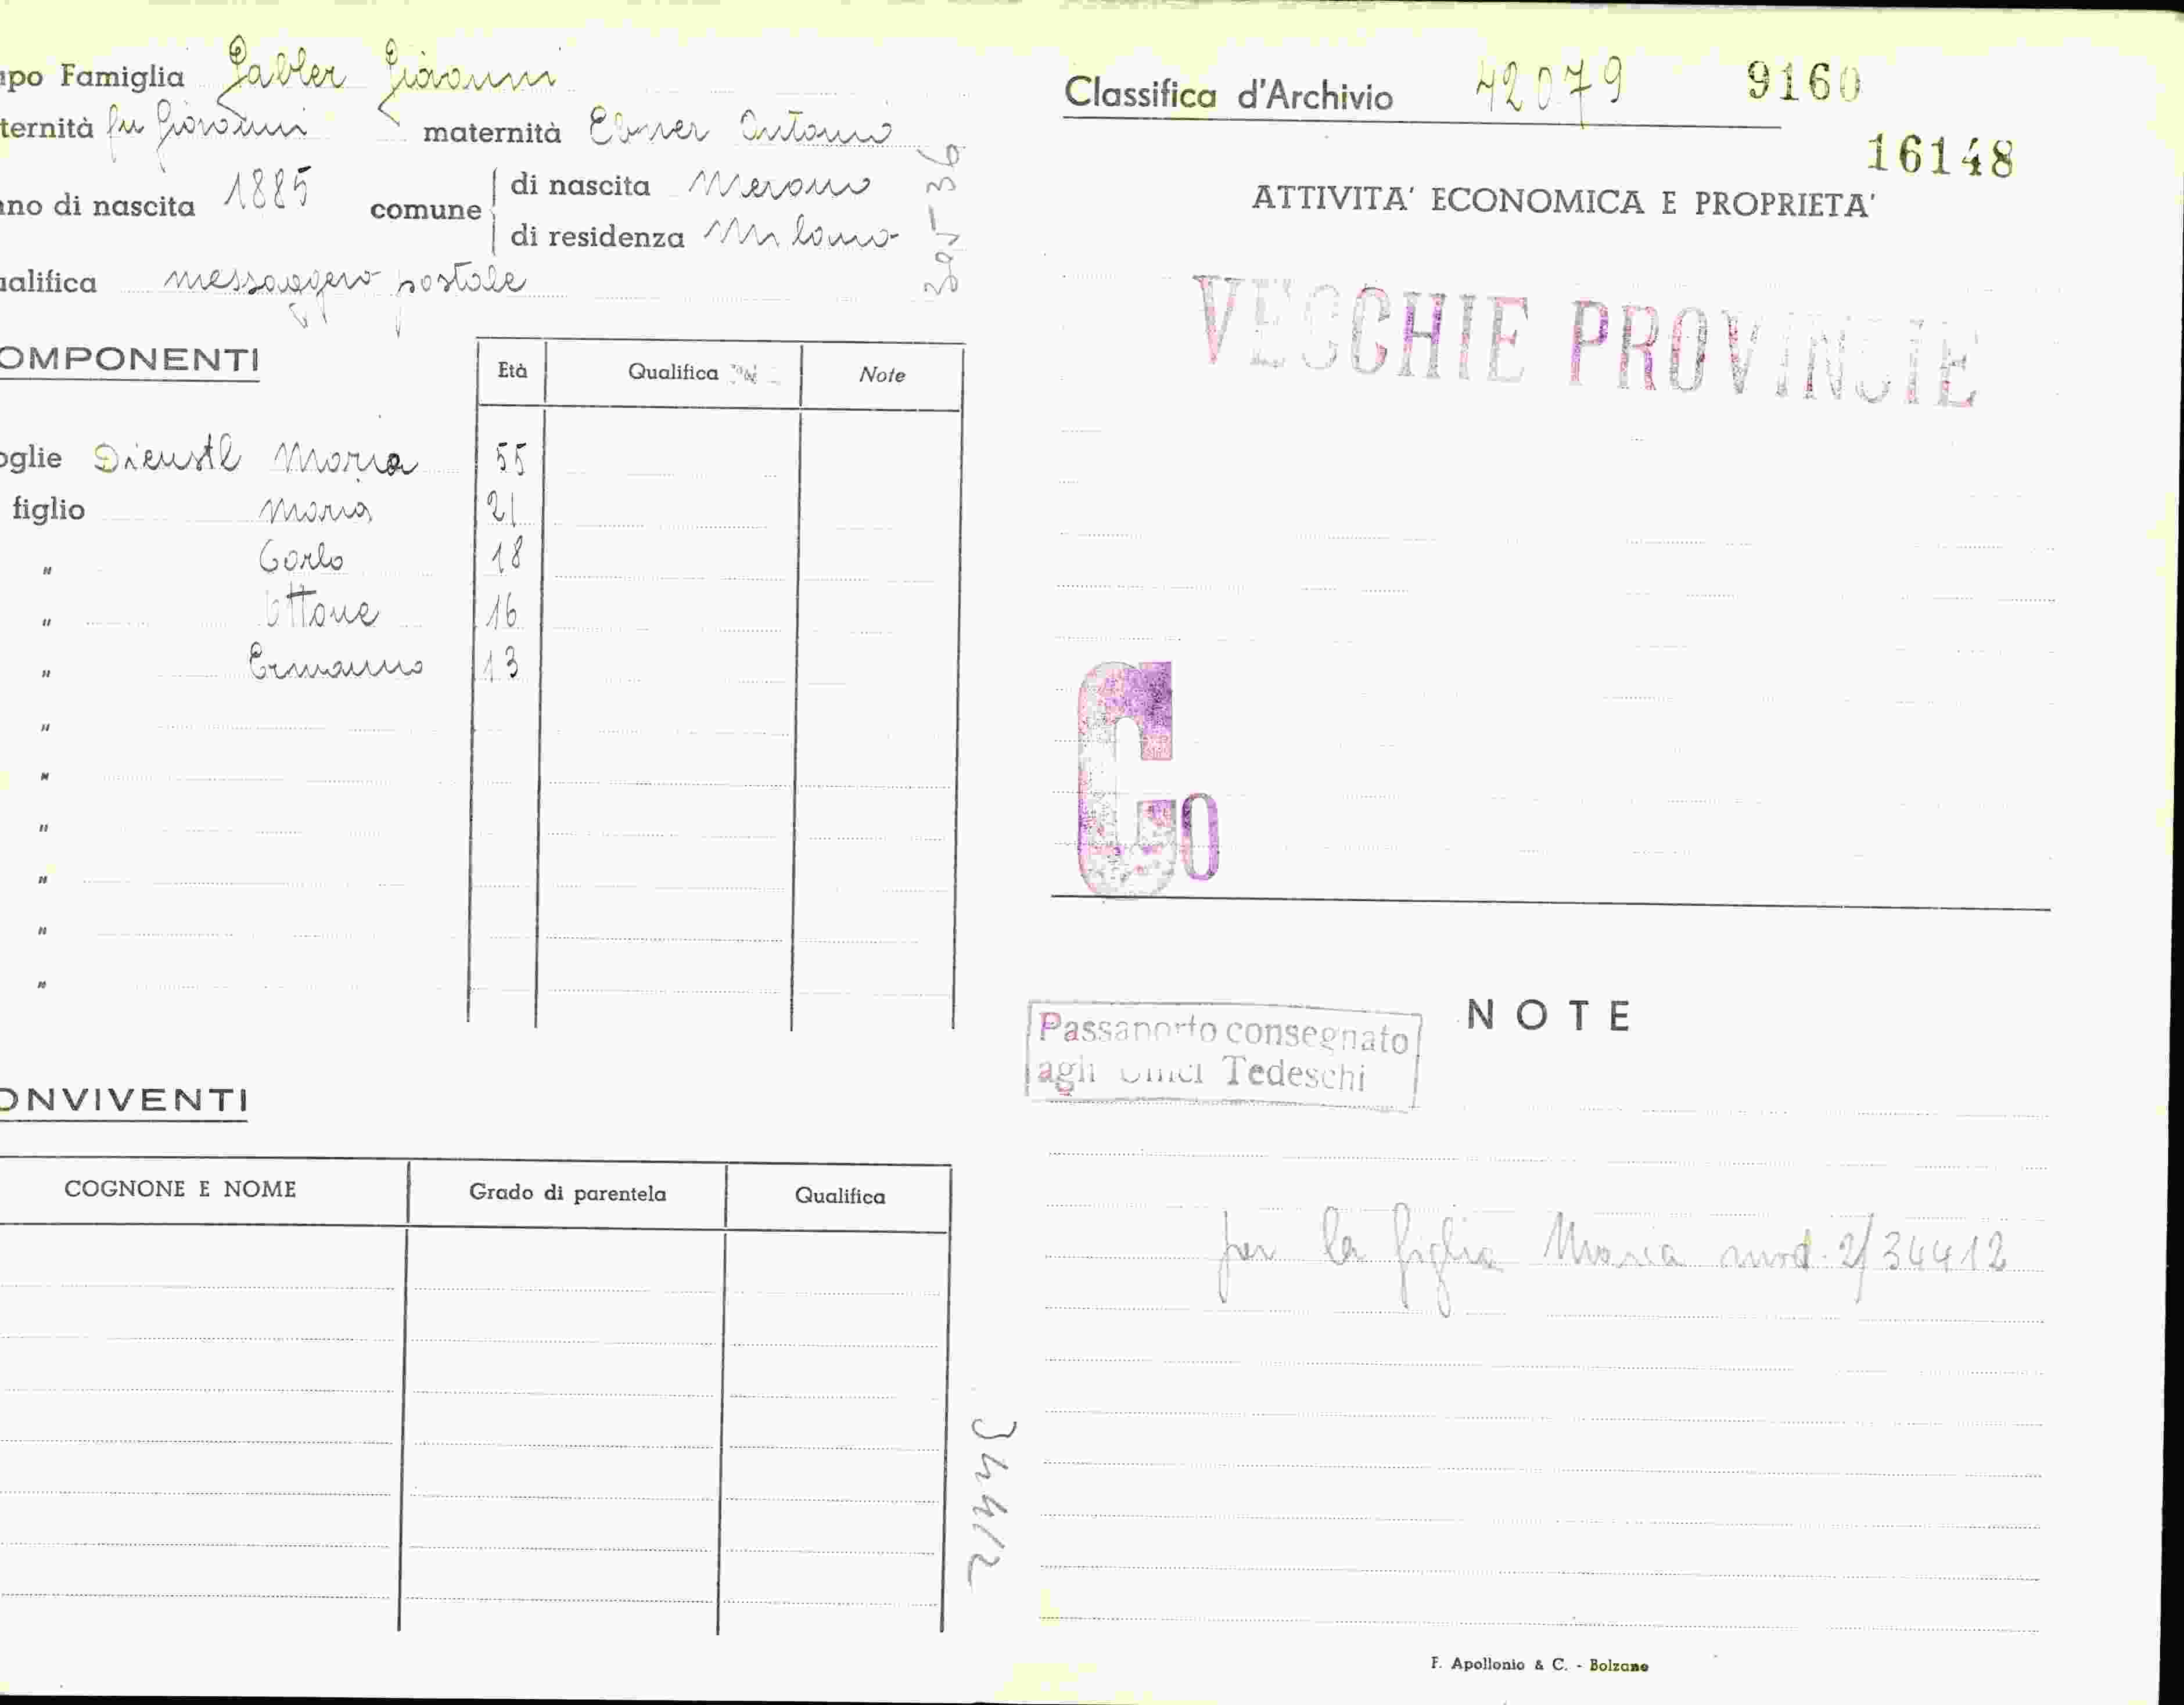 apo Famiglia Gabler Giovanni
ternità fu Giovanni maternità Ebner Antonia
nno di nascita 1885 comune di nascita Merano
di residenza Milano
ualifica messaggero postale
395-36
OMPONENTI
Età Qualifica Note
oglie Dienstl Maria 55
figlio Maria 21
" Carlo 18
" Ottone 16
" Ermanno 13
"
"
"
"
"
"
ONVIVENTI
COGNONE E NOME Grado di parentela Qualifica
34412
Classifica d'Archivio 42079 9160
16148
ATTIVITA' ECONOMICA E PROPRIETA'
VECCHIE PROVINCIE
Go
NOTE
Passaporto consegnato
agli Uffici Tedeschi
per la figlia Maria mod. 2/34412
F. Apollonio & C. - Bolzano